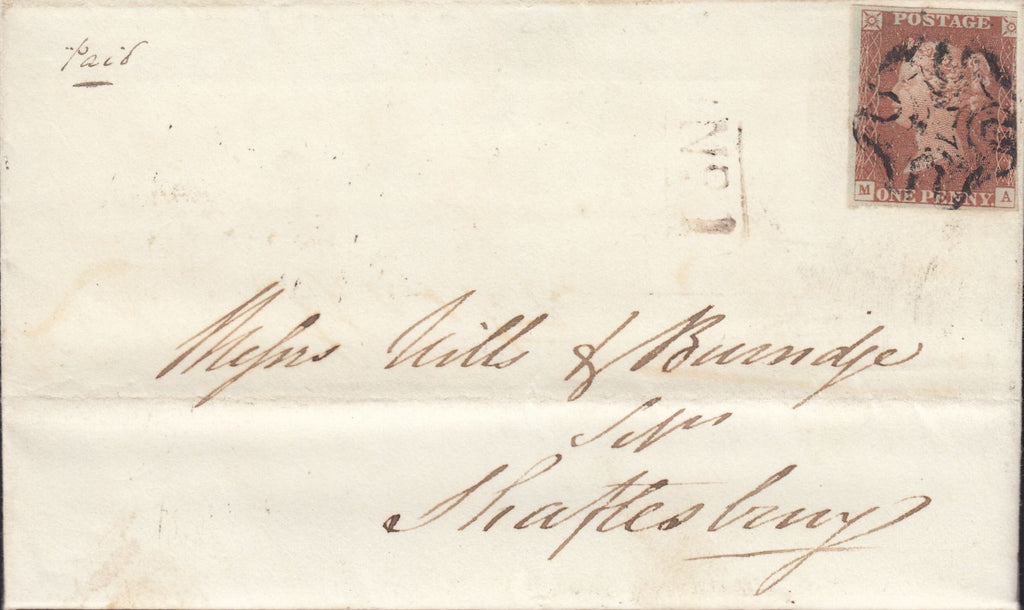 Paid
POSTAGE
M ONE PENNY A
No 1
Messrs Nills & Burridge
Solrs
Shaftesbury